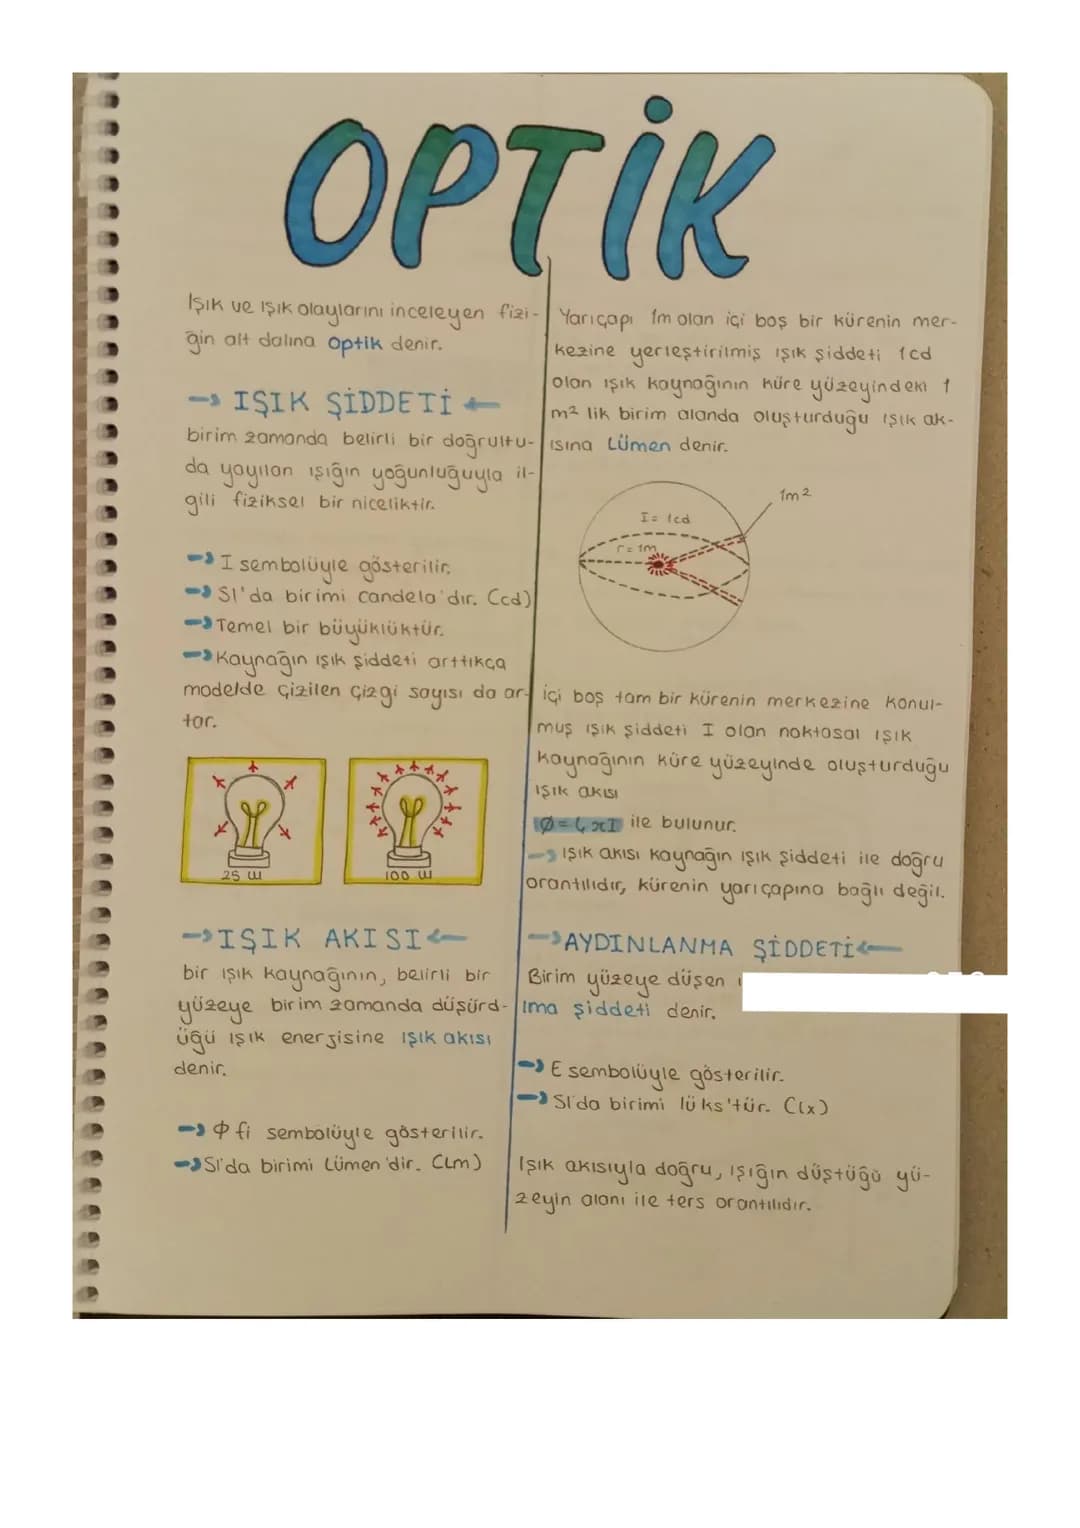 OPTİK
Işık ve ışık olaylarını inceleyen fizi-
ğin alt dalına Optik denir.
→ IŞIK ŞİDDETİ ←
birim zamanda belirli bir doğrultu-
da yayılan ışığın yoğunluğuyla il-
gili fiziksel bir niceliktir.
→ I sembolüyle gösterilir.
→ SI'da birimi candela'dır. (cd)
→ Temel bir büyüklüktür.
→ Kaynağın ışık şiddeti arttıkça
modelde çizilen çizgi sayısı da ar-
tar.
25 W
100 W
→ IŞIK AKISI ←
bir ışık kaynağının, belirli bir
yüzeye birim zamanda düşürd-
üğü ışık enerjisine ışık akısı
denir.
→ Φ fi sembolüyle gösterilir.
→ SI'da birimi Lümen'dir. (Lm)
Yarıçapı 1m olan içi boş bir kürenin mer-
kezine yerleştirilmiş ışık şiddeti 1cd
olan ışık kaynağının küre yüzeyindeki 1
m² lik birim alanda oluşturduğu ışık ak-
ısına Lümen denir.
1m²
I= 1cd
r= 1m
içi boş tam bir kürenin merkezine konul-
muş ışık şiddeti I olan noktasal ışık
kaynağının küre yüzeyinde oluşturduğu
ışık akısı
Ø = 4πI ile bulunur.
→ Işık akısı kaynağın ışık şiddeti ile doğru
orantılıdır, kürenin yarıçapına bağlı değil.
→ AYDINLANMA ŞİDDETİ ←
Birim yüzeye düşen
lma şiddeti denir.
→ E sembolüyle gösterilir.
→ SI'da birimi lüks'tür. (lx)
Işık akısıyla doğru, ışığın düştüğü yü-
zeyin alanı ile ters orantılıdır.